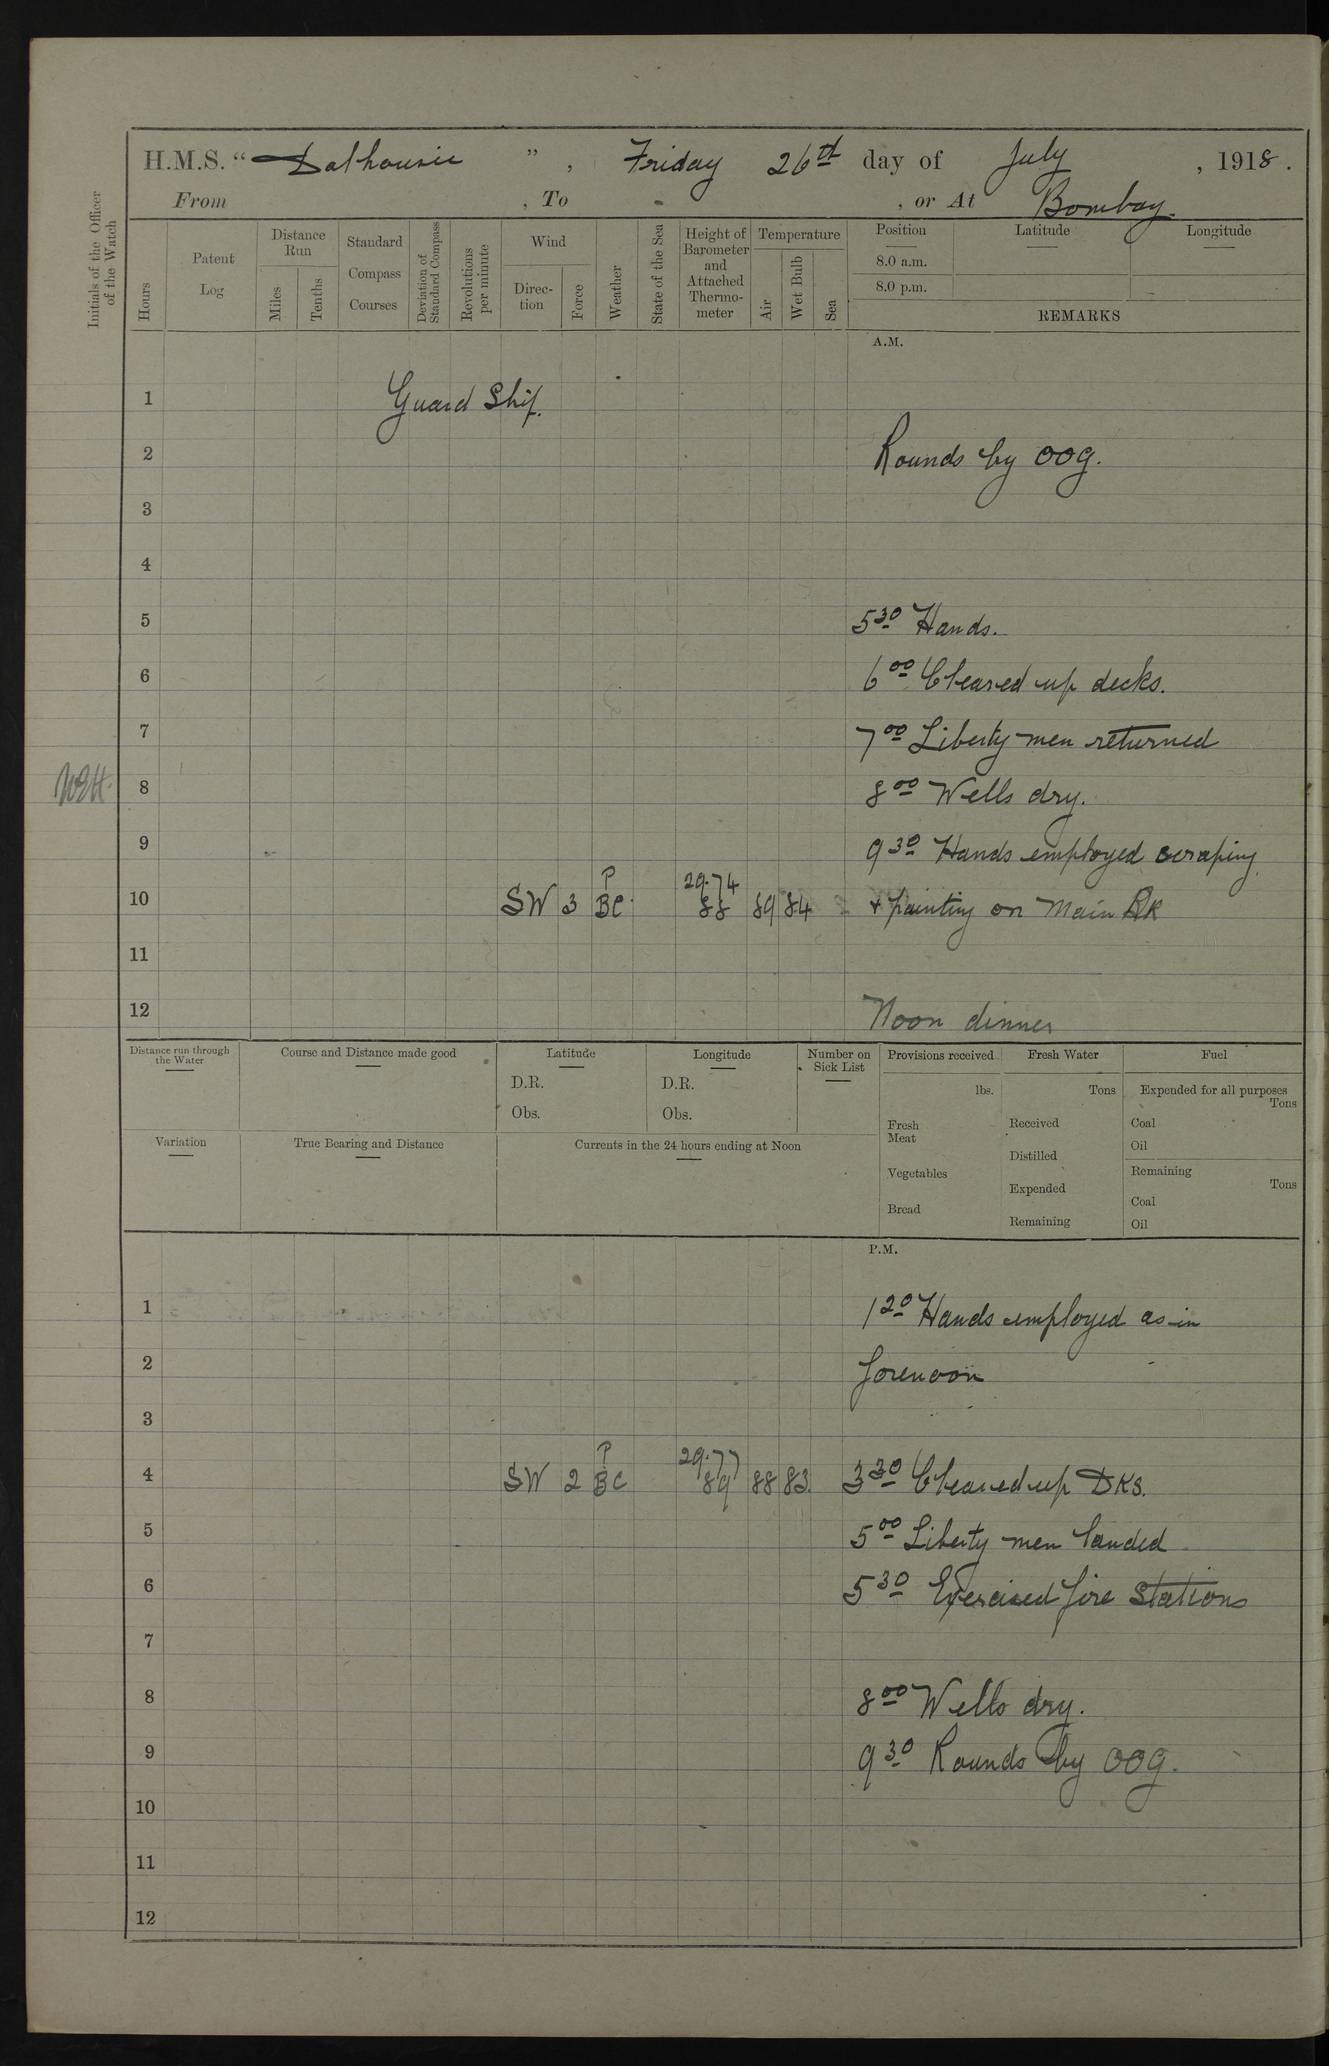 H.M.S. "Dalhousie", Friday 26th day of July, 1918.
From , To , or At Bombay.
Initials of the Officer of the Watch
Hours
Patent Log
Distance Run
Miles
Tenths
Standard Compass Courses
Deviation of Standard Compass
Revolutions per minute
Wind
Direction
Force
Weather
State of the Sea
Height of Barometer and Attached Thermometer
Temperature
Air
Wet Bulb
Sea
Position
Latitude
Longitude
8.0 a.m.
8.0 p.m.
REMARKS
A.M.
1 Guard Ship.
2 Rounds by OOG.
3
4
5 5 30 Hands.
6 6 00 Cleared up decks.
7 7 00 Liberty men returned
8 8 00 Wells dry.
9 9 30 Hands employed scraping
P 29.74
10 SW 3 BC 88 89 84 + painting on Main DK
11
12 Noon dinner
Distance run through the Water
Course and Distance made good
Latitude
D.R.
Obs.
Longitude
D.R.
Obs.
Number on Sick List
Provisions received
lbs.
Fresh Meat
Vegetables
Bread
Fresh Water
Tons
Received
Distilled
Expended
Remaining
Fuel
Expended for all purposes
Tons
Coal
Oil
Remaining
Tons
Coal
Oil
Variation
True Bearing and Distance
Currents in the 24 hours ending at Noon
P.M.
1 1 20 Hands employed as in
2 forenoon
3
P 29.77
4 SW 2 BC 89 88 83 3 30 Cleared up DKS.
5 5 00 Liberty men landed
6 5 30 Exercised fire stations
7
8 8 00 Wells dry.
9 9 30 Rounds by OOG.
10
11
12